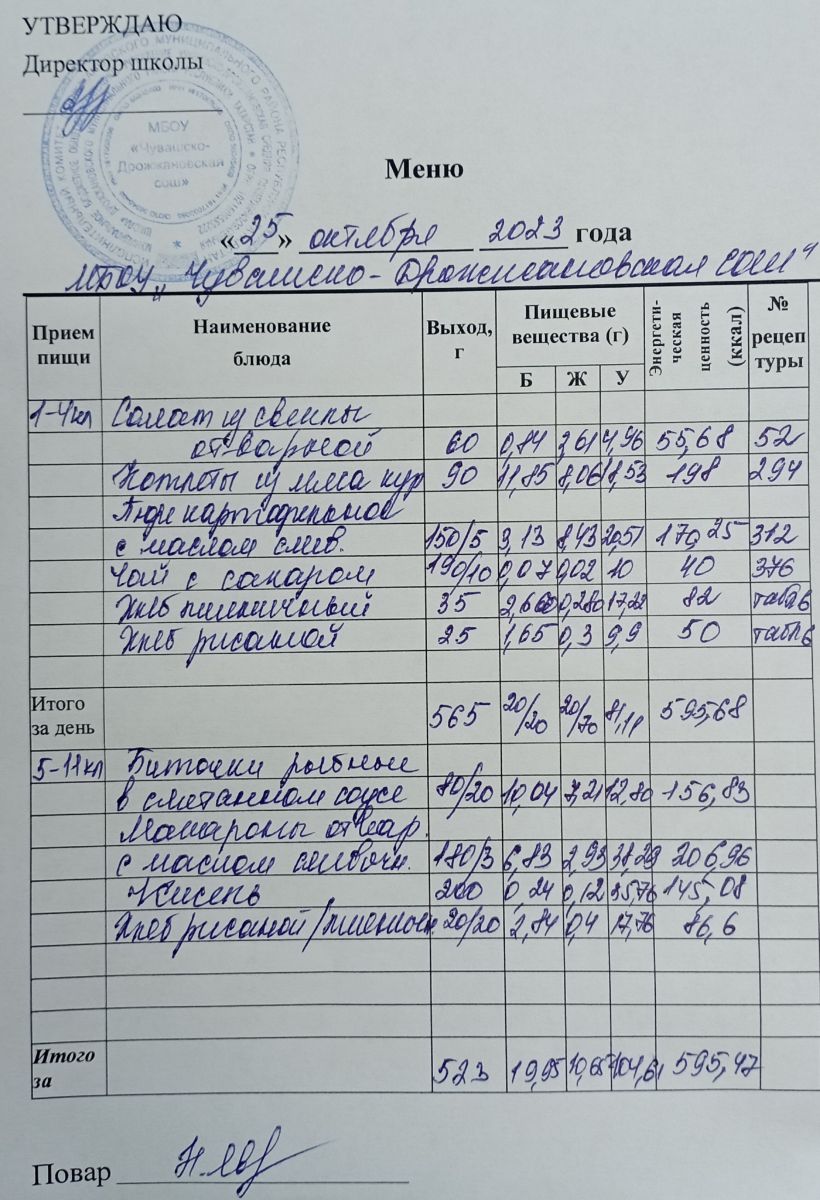 УТВЕРЖДАЮ
Директор школы
МБОУ
«Чувашско-
Дрожжановская
сош»
Меню
« 25 » октября 2023 года
МБОУ „Чувашско-Дрожжановская СОШ"
Прием пищи Наименование блюда Выход, г Пищевые вещества (г) Б Ж У Энергети-ческая ценность (ккал) № рецеп туры
1-4кл Салат из свеклы
отварной 60 0,84 3,61 4,96 55,68 52
Котлеты из мяса кур 90 11,85 8,06 11,53 198 294
Пюре картофельное
с маслом слив. 150/5 3,13 8,43 20,51 170,25 312
Чай с сахаром 190/10 0,07 0,02 10 40 376
Хлеб пшеничный 35 2,660 0,280 17,22 82 табл6
Хлеб ржаной 25 1,65 0,3 9,9 50 табл6
Итого за день 565 20/20 20/70 81,11 595,68
5-11кл Биточки рыбные
в сметанном соусе 80/20 10,04 7,21 12,80 156,83
Макароны отвар.
с маслом сливочн. 180/3 6,83 2,93 38,29 206,96
Кисель 200 0,24 0,12 35,76 145,08
Хлеб ржаной/пшеничн. 20/20 2,84 0,4 17,76 86,6
Итого за 523 19,95 10,65 104,61 595,47
Повар